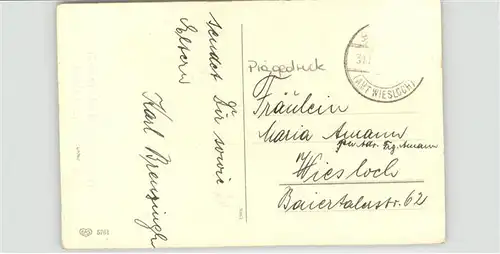 sendet Dir sowie
Eltern
Karl Brenzingh
Prägedruck
(AMT WIESLOCH)
Fräulein
Maria Amann
per Adr. Eg. Amann
Wiesloch
Baiertalerstr. 62
5761